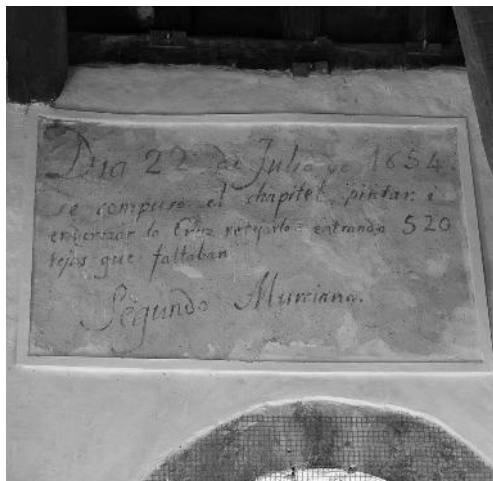 Dia 22 de Julio de 1654.
se compuso el chapitel, pintar e
envernizar la Cruz retejarlo entrando 520
tejas que faltaban
Segundo Murciano.